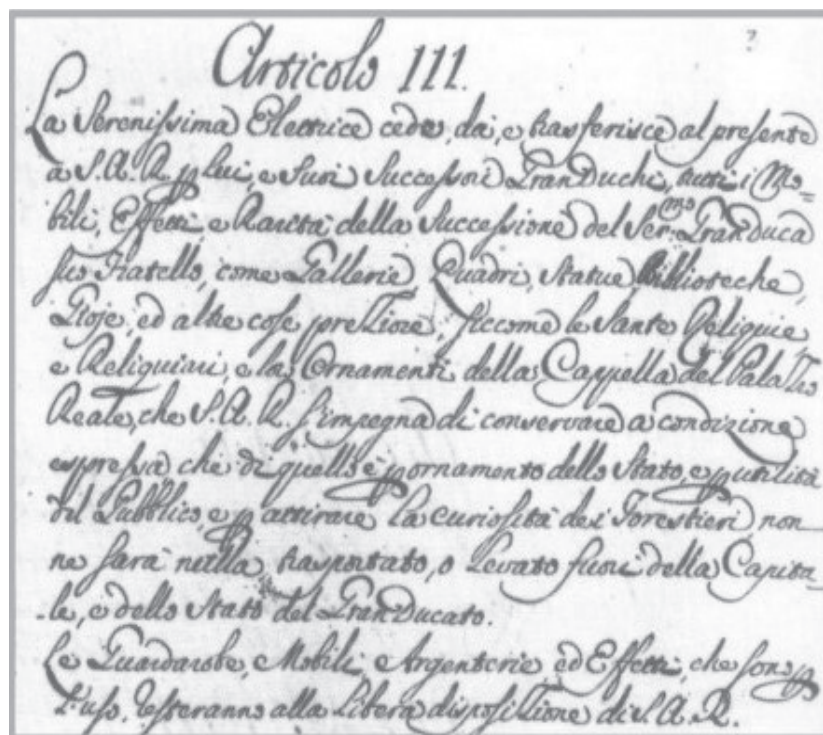 Articolo III.
La Serenissima Elettrice cede, dà, e trasferisce al presente
a S.A.R. p lui, e Suoi Successori GranDuchi, tutti i Mo=
bili, Effetti e Rarità della Successione del Ser:mo GranDuca
suo Fratello, come Gallerie, Quadri, Statue, Biblioteche,
Gioje, ed altre cose preziose, siccome le Sante Reliquie
e Reliquiari, e loro Ornamenti della Cappella del Palazzo
Reale, che S.A.R. s'impegna di conservare a condizione
espressa, che di quello è p ornamento dello Stato, e p utilità
del Pubblico, e p attirare la curiosità dei Forestieri, non
ne sarà nulla trasportato, o levato fuori della Capita
-le, e dello Stato del GranDucato.
Le Guardarobe, Mobili, Argenterie, ed Effetti, che sono p
l'uso, resteranno alla libera disposizione di S.A.R.